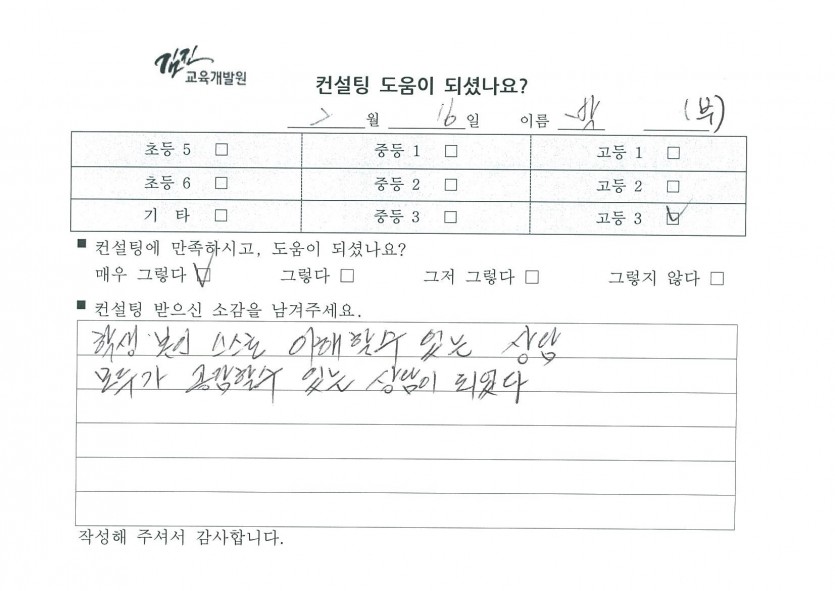 김진
교육개발원
컨설팅 도움이 되셨나요?
7 월 16 일 이름 박 (부)
초등 5 □ 중등 1 □ 고등 1 □
초등 6 □ 중등 2 □ 고등 2 □
기 타 □ 중등 3 □ 고등 3 ☑
■ 컨설팅에 만족하시고, 도움이 되셨나요?
매우 그렇다 ☑ 그렇다 □ 그저 그렇다 □ 그렇지 않다 □
■ 컨설팅 받으신 소감을 남겨주세요.
학생 본인 스스로 이해할수 있는 상담
모두가 공감할수 있는 상담이 되었다
작성해 주셔서 감사합니다.